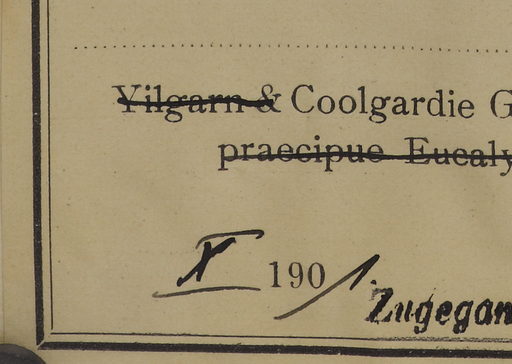 Yilgarn & Coolgardie G
praecipue Eucaly
X 1901
Zugegan